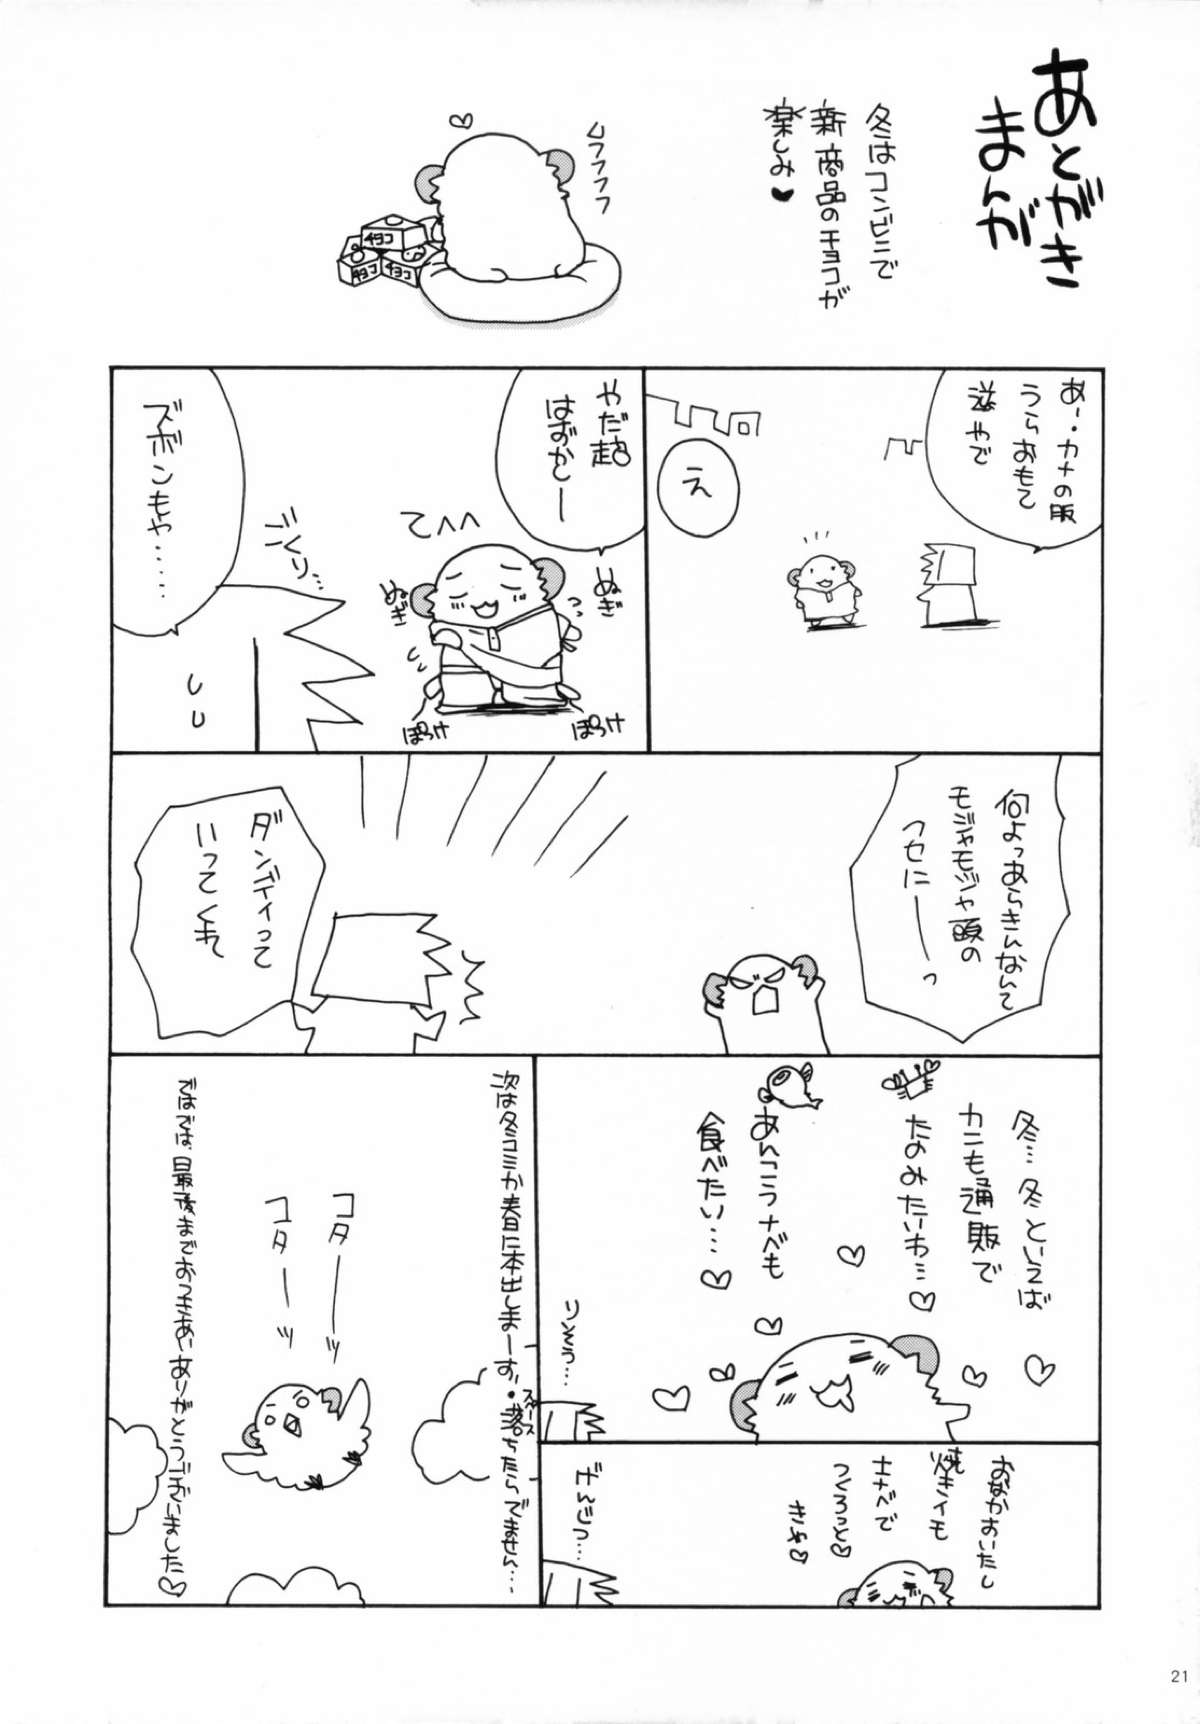 あとがき
まんが
冬はコンビニで
新商品のチョコが
楽しみ♥
ムフフフフ
チョコ
チョコ
チョコ
あー・カナの服
うらおもて
逆やで
え
やだ超
はずかしー
てへへ
ぬぎ
ぬぎ
ぽろけ
ぽろけ
ごくり…
ズボンもや……
何よっあらきんなんて
モジャモジャ頭の
クセにーーっ
ダンディって
いってくれ
冬…冬といえば
カニも通販で
たのみたいわ…♡
あんこうナベも
食べたい…♡
リンそう…
おなかおいたし
焼きイモ
土ナベで
つくろっと♡
きゃ♡
げんじつ…
次は冬コミか春に本出しまーす。・スペース落ちたらでません…
コターーッ
コターーッ
ではでは、最後までおつきあいありがとうございました♡
21